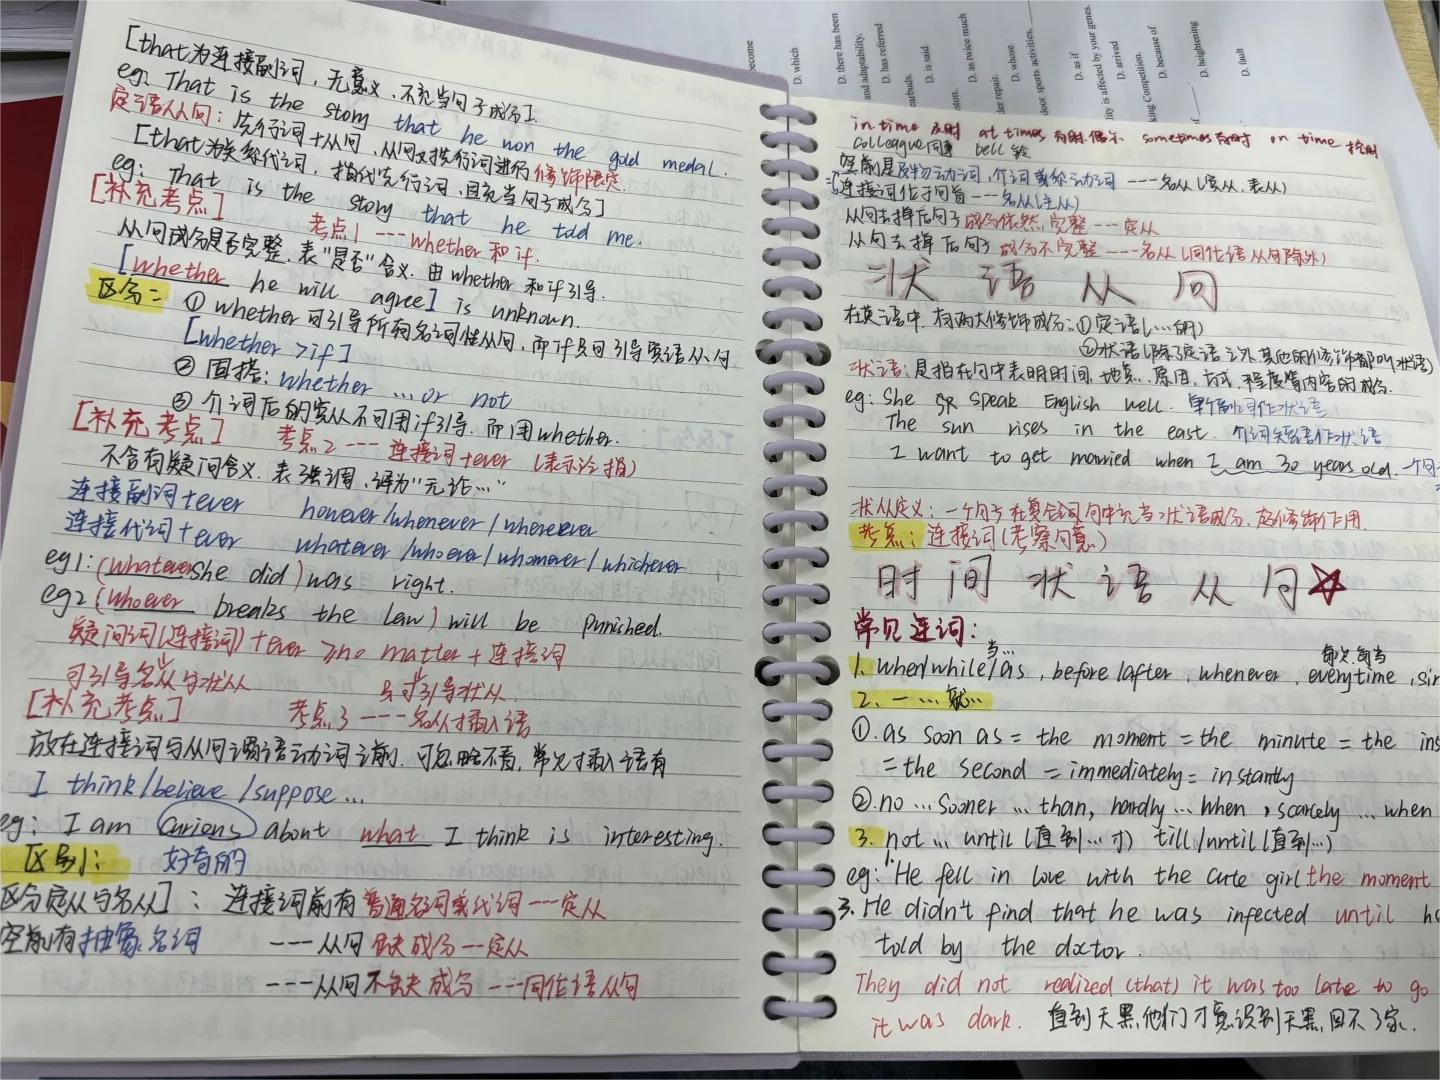 [that为连接副词，无意义，不充当句子成分].
eg: That is the story that he won the gold medal.
定语从句: 先行词+从句，从句对先行词进行修饰限定.
[that为关系代词，指代先行词，且充当句子成分]
eg: That is the story that he told me.
[补充考点] 考点1 ---whether 和 if.
从句成分是否完整，表"是否"含义，由whether和if引导.
[whether he will agree] is unknown.
区分: ① whether可引导所有名词性从句，而if只可引导宾语从句
[whether >if]
② 固搭: whether ... or not
③ 介词后的宾从不可用if引导，而用whether.
[补充考点] 考点2 --- 连接词+ever (表示泛指)
不含有疑问含义，表强调，译为"无论..."
连接副词+ever however/whenever/wherever
连接代词+ever whatever/whoever/whomever/whichever
eg1: (whatever she did) was right.
eg2 (whoever breaks the law) will be punished.
疑问词(连接词)+ever ≥ no matter + 连接词
可引导名从与状从 只可引导状从
[补充考点] 考点3 ---名从+插入语
放在连接词与从句谓语动词之前，可忽略不看，常见插入语有
I think/believe/suppose...
eg: I am curious about what I think is interesting.
区别: 好奇的
区分定从与名从]: 连接词前有普通名词或代词 ---定从
空前有抽象名词 ---从句缺成分---定从
---从句不缺成分---同位语从句
become
D. which
D. there has been
and adaptability.
D. has referred
earbuds.
D. is said
D. as twice much
der repair.
D. whose
door sports activities,
D. as if
ity is affected by your genes.
D. arrived
king Competition.
D. because of
D. heightening
D. fault
in time 及时 at times 有时,偶尔 sometimes 有时 on time 按时
colleague同事 bell 铃
空前是及物动词,介词或系动词 ---名从(宾从,表从)
[连接词位于句首---名从(主从)
从句去掉后句子成分依然完整---定从
从句去掉后句子成分不完整---名从(同位语从句除外)
状语从句
在英语中,有两大修饰成分:①定语(...的)
②状语(除了定语之外其他的修饰都叫状语)
状语:是指在句中表明时间,地点,原因,方式,程度等内容的成分.
eg: She speak English well. 单个副词作状语
The sun rises in the east. 介词短语作状语
I want to get married when I am 30 years old. 一个句
状从定义: 一个句子在复合词句中充当状语成分,起修饰作用.
考点: 连接词(考察句意)
时间状语从句☆
常见连词:
当... 每次,每当
1. when/while/as, before/after, whenever, everytime, sin
2. 一...就...
①. as soon as = the moment = the minute = the ins
= the second = immediately = instantly
②. no ... sooner ... than, hardly ... when, scarcely ... when
3. not ... until (直到...才) till/until(直到...)
eg: 1. He fell in love with the cute girl the moment
3. He didn't find that he was infected until he
told by the doctor.
They did not realized (that) it was too late to go
it was dark. 直到天黑,他们才意识到天黑,回不了家.